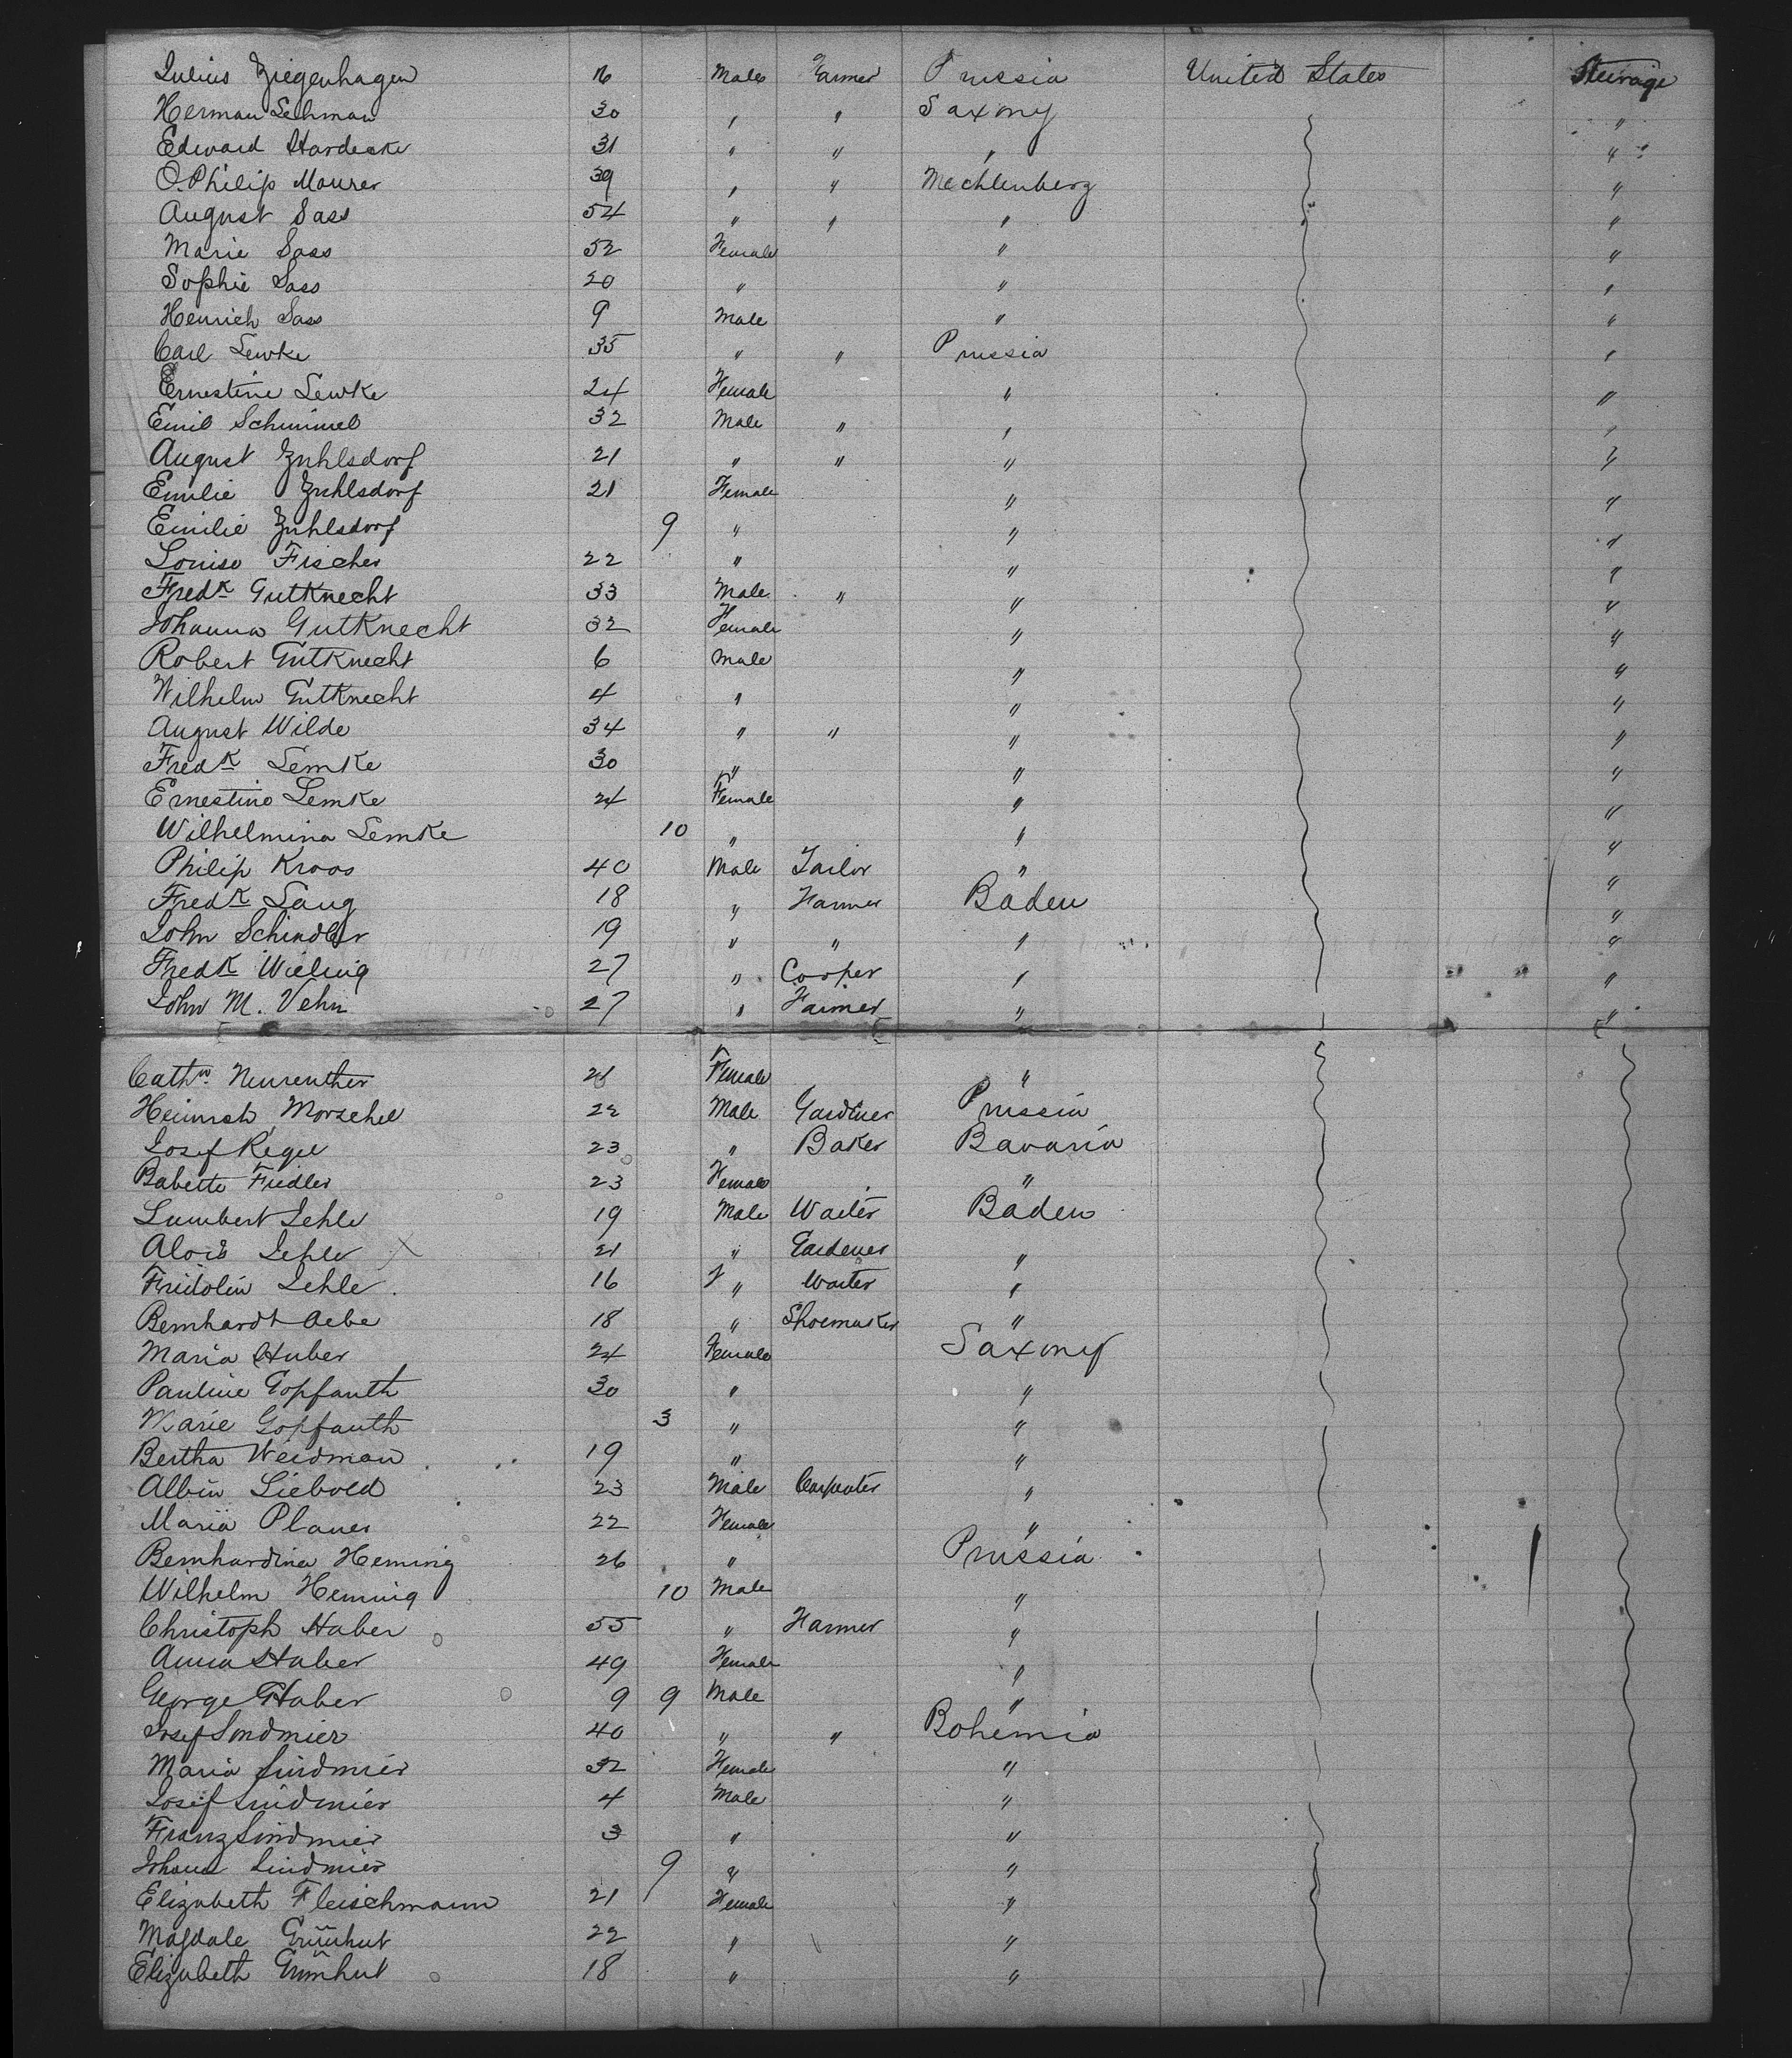 Julius Ziegenhagen 16 Male Farmer Prussia United States Steerage
Herman Lehman 30 " " Saxony "
Edward Hardeske 31 " " " "
O. Philip Maurer 39 " " Mechlenberg "
August Sass 54 " " " "
Marie Sass 52 Female " "
Sophie Sass 20 " " "
Henrich Sass 9 Male " "
Carl Lewke 35 " " Prussia "
Ernestine Lewke 24 Female " "
Emil Schimmel 32 Male " " "
August Zuhlsdorf 21 " " " "
Emilie Zuhlsdorf 21 Female " "
Emilie Zuhlsdorf 9 " " "
Louise Fischer 22 " " "
Fredk Gutknecht 33 Male " " "
Johanna Gutknecht 32 Female " "
Robert Gutknecht 6 Male " "
Wilhelm Gutknecht 4 " " "
August Wilde 34 " " " "
Fredk Lemke 30 " " "
Ernestine Lemke 24 Female " "
Wilhelmina Lemke 10 " " "
Philip Kroos 40 Male Tailor " "
Fredk Lang 18 " Farmer Baden "
John Schindler 19 " " " "
Fredk Wieling 27 " Cooper " "
John M. Vehn 27 " Farmer " "
Cathn Neureuther 21 Female "
Heinrich Morschel 22 Male Gardiner Prussia
Josef Regel 23 " Baker Bavaria
Babette Fiedler 23 Female "
Lumbert Jehle 19 Male Waiter Baden
Alois Jehle X 21 " Gardener "
Fridolin Jehle 16 " Waiter "
Bernhardt Aebe 18 " Shoemaker "
Maria Huber 24 Female Saxony
Pauline Gopfauth 30 " "
Marie Gopfauth 3 " "
Bertha Weidman 19 " "
Albin Liebold 23 Male Carpenter "
Maria Planer 22 Female "
Bernhardina Heming 26 " Prussia
Wilhelm Heming 10 Male "
Christoph Haber 55 " Farmer "
Anna Haber 49 Female "
George Haber 9 9 Male "
Josef Sindmier 40 " " Bohemia
Maria Sindmier 32 Female "
Josef Sindmier 4 Male "
Franz Sindmier 3 " "
Johann Sindmier 9 " "
Elizabeth Fleischmann 21 Female "
Magdale Grünhut 22 " "
Elizabeth Grünhut 18 " "